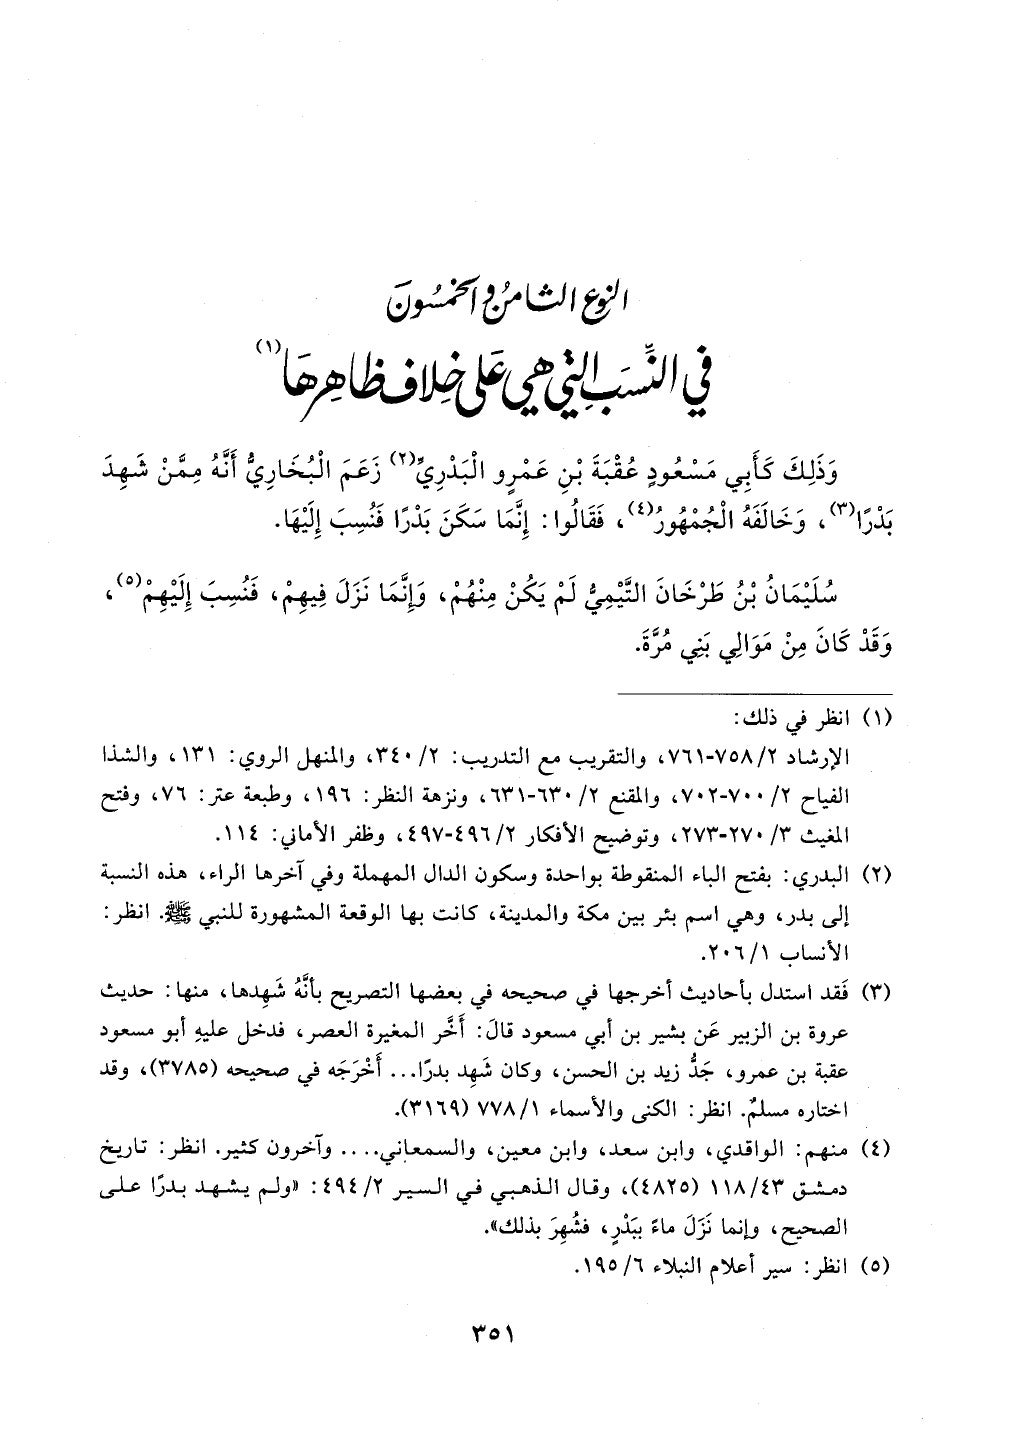 النوع الثامن والخمسون
في النِّسَبِ التي هي عَلى خِلاف ظاهِرِهَا(١)
وَذَلِكَ كَأَبِي مَسْعُودٍ عُقْبَةَ بْنِ عَمْرٍو الْبَدْرِيِّ(٢) زَعَمَ الْبُخَارِيُّ أَنَّهُ مِمَّنْ شَهِدَ
بَدْرًا(٣)، وَخَالَفَهُ الْجُمْهُورُ(٤)، فَقَالُوا: إِنَّمَا سَكَنَ بَدْرًا فَنُسِبَ إِلَيْهَا.
سُلَيْمَانُ بْنُ طَرْخَانَ التَّيْمِيُّ لَمْ يَكُنْ مِنْهُمْ، وَإِنَّمَا نَزَلَ فِيهِمْ، فَنُسِبَ إِلَيْهِمْ(٥)،
وَقَدْ كَانَ مِنْ مَوَالِي بَنِي مُرَّةَ.
(١) انظر في ذلك:
الإرشاد ٢/ ٧٥٨-٧٦١، والتقريب مع التدريب: ٢/ ٣٤٠، والمنهل الروي: ١٣١، والشذا
الفياح ٢/ ٧٠٠-٧٠٢، والمقنع ٢/ ٦٣٠-٦٣١، ونزهة النظر: ١٩٦، وطبعة عتر: ٧٦، وفتح
المغيث ٣/ ٢٧٠-٢٧٣، وتوضيح الأفكار ٢/ ٤٩٦-٤٩٧، وظفر الأماني: ١١٤.
(٢) البدري: بفتح الباء المنقوطة بواحدة وسكون الدال المهملة وفي آخرها الراء، هذه النسبة
إلى بدر، وهي اسم بئر بين مكة والمدينة، كانت بها الوقعة المشهورة للنبي ﷺ. انظر:
الأنساب ١/ ٢٠٦.
(٣) فَقد استدل بأحاديث أخرجها في صحيحه في بعضها التصريح بأنَّهُ شَهِدها، منها: حديث
عروة بن الزبير عَن بشير بن أبي مسعود قالَ: أَخَّر المغيرة العصر، فدخل عليهِ أبو مسعود
عقبة بن عمرو، جَدُّ زيد بن الحسن، وكان شَهِد بدرًا... أَخْرَجَه في صحيحه (٣٧٨٥)، وقد
اختاره مسلمٌ. انظر: الكنى والأسماء ١/ ٧٧٨ (٣١٦٩).
(٤) منهم: الواقدي، وابن سعد، وابن معين، والسمعاني.... وآخرون كثير. انظر: تاريخ
دمشق ٤٣/ ١١٨ (٤٨٢٥)، وقال الذهبي في السير ٢/ ٤٩٤: «ولم يشهد بدرًا على
الصحيح، وإنما نَزَلَ ماءً ببَدْرٍ، فشُهِرَ بذلك».
(٥) انظر: سير أعلام النبلاء ٦/ ١٩٥.
٣٥١